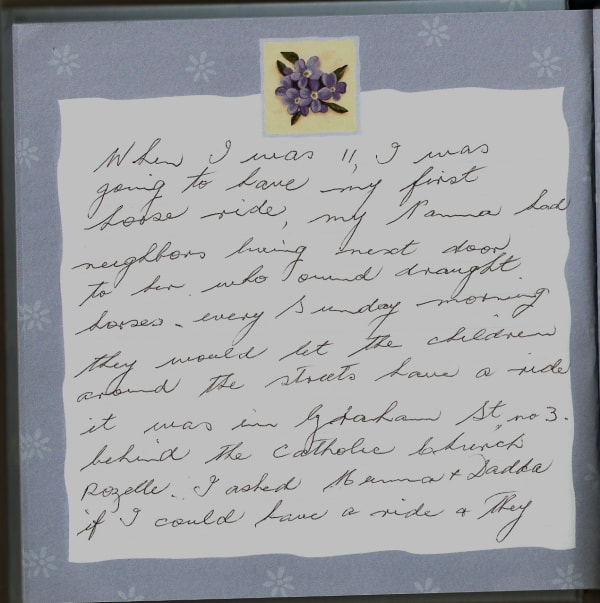 When I was 11, I was
going to have my first
horse ride, my Nanna had
neighbors living next door
to her who ownd draught
horses - every Sunday morning
they would let the children
around the streets have a ride
it was in Graham St no 3.
behind the Catholic Church
Rozelle. I asked Nanna + Dadda
if I could have a ride & They